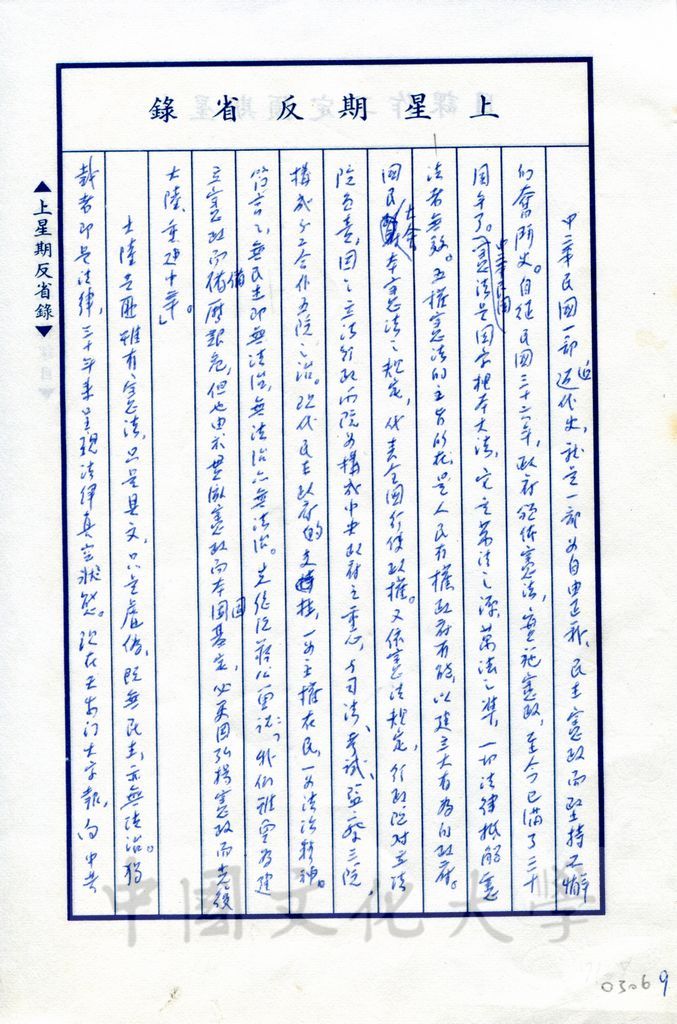 上星期反省錄
中華民國一部近代史，就是一部為自由平等、民主憲政而堅持不懈
的奮鬥史。自從民國三十六年，政府頒佈憲法，實施憲政，至今已滿了三十
周年了。中華民國憲法是國家根本大法，它是萬法之源，萬法之準，一切法律抵觸憲
法者無效。五權憲法的主旨所在，是人民有權政府有能，以建立大有為的政府。
國民大會本憲法之規定，代表全國行使政權。又依憲法規定，行政院對立法
院負責，因之立法行政兩院為構成中央政府之重心，與司法、考試、監察三院
構成分工合作五院之治。現代民主政府的支柱，一為主權在民，一為法治精神。
簡言之，無民主即無法治，無法治亦無法治。先總統蔣公曾說：外侮雖
立憲政而備歷艱危，但也由於貫徹憲政而本固基定，必更因弘揚憲政而光復
大陸，重迎中華」。
大陸是雖有憲法，只是具文，只是虛偽，既無民主，亦無法治。獨
裁者即是法律，三十年來呈現法律真空狀態。現在天安門大字報，向中共
▲上星期反省錄▼
中國文化大學
03069